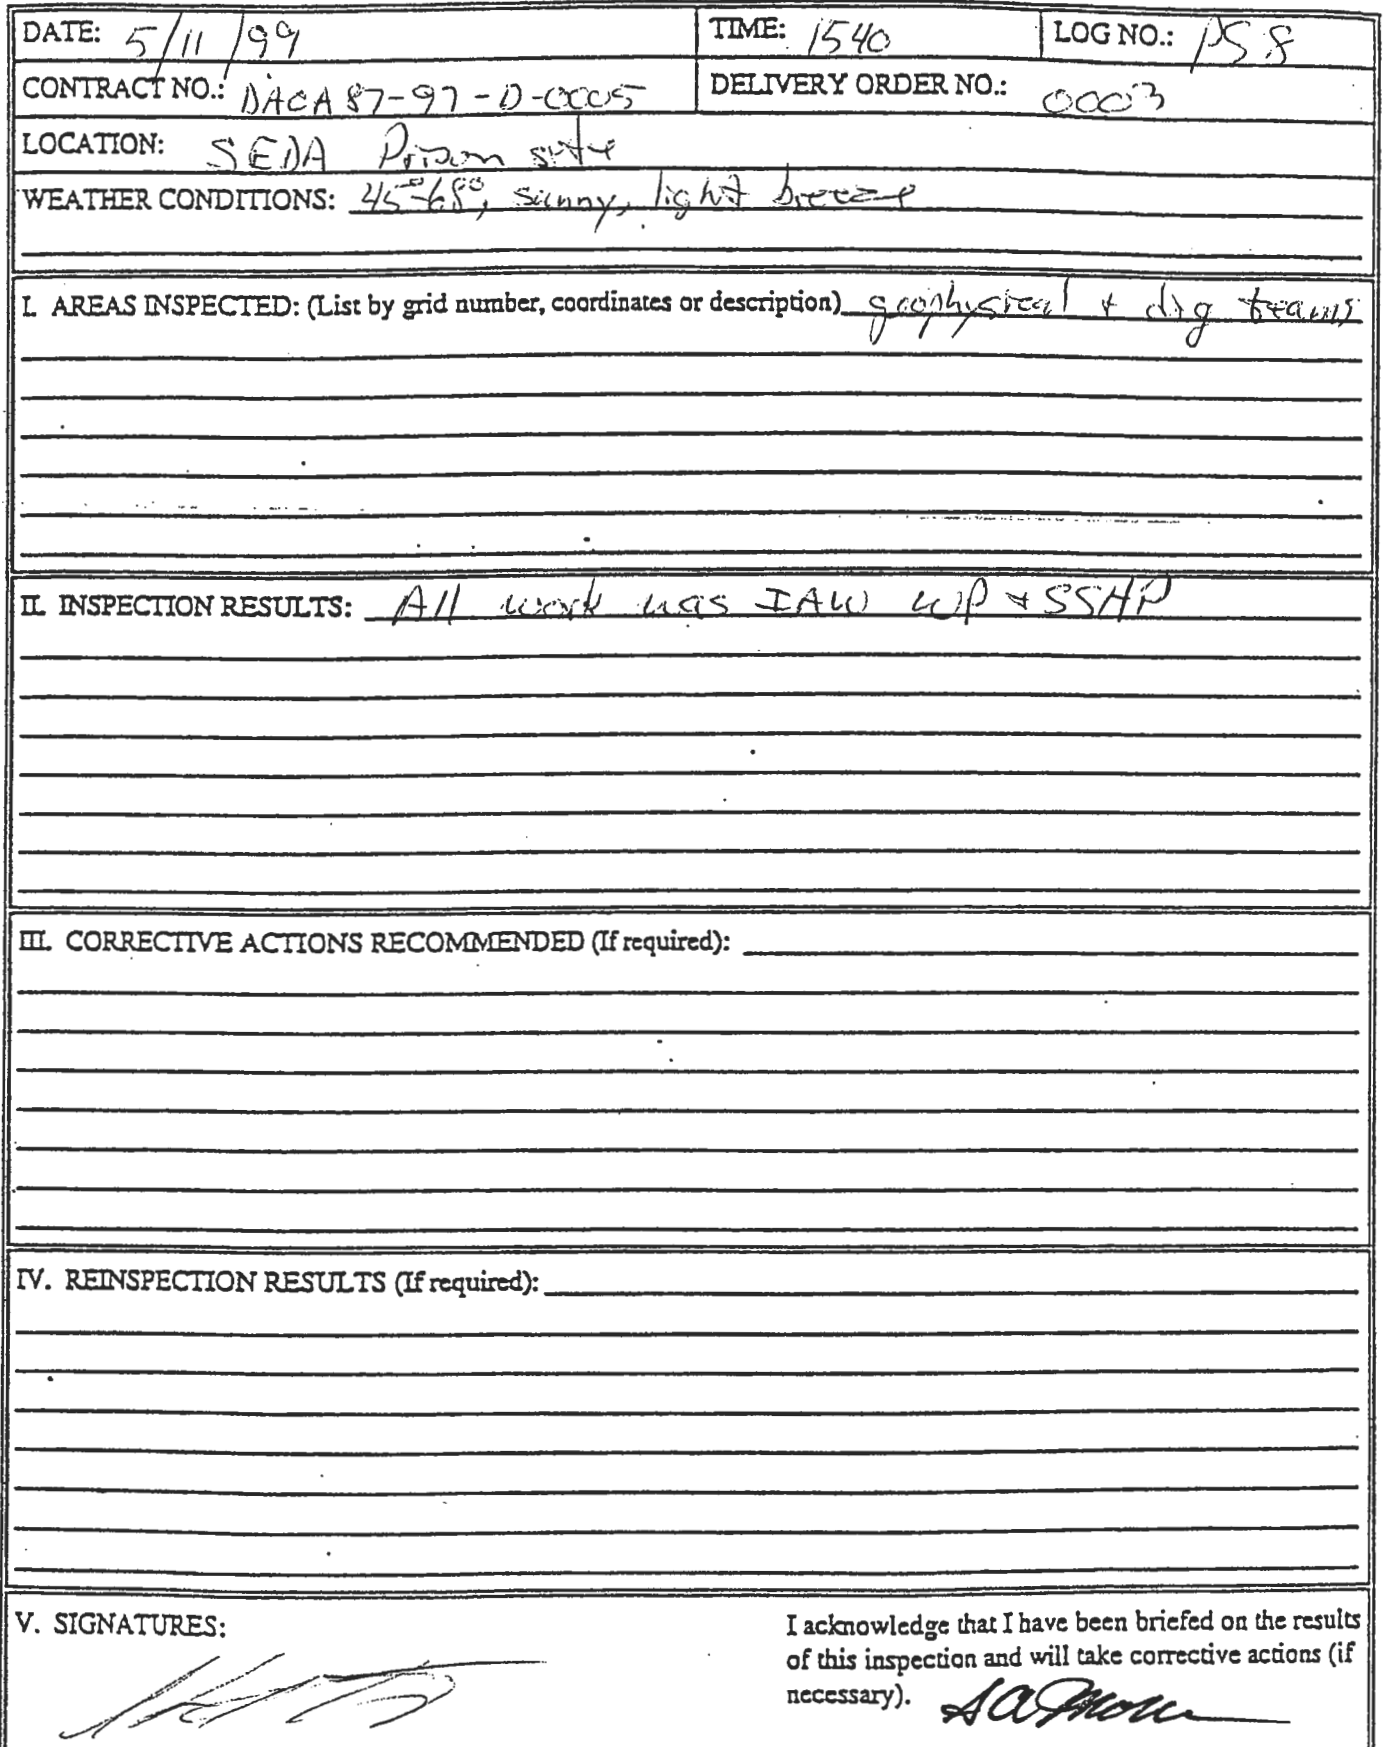 DATE: 5/11/99 TIME: 1540 LOG NO.: PS 8
CONTRACT NO.: DACA87-97-D-0005 DELIVERY ORDER NO.: 0003
LOCATION: SEDA Prison site
WEATHER CONDITIONS: 45°-68°, sunny, light breeze
I. AREAS INSPECTED: (List by grid number, coordinates or description) geophysical + dig teams
II. INSPECTION RESULTS: All work was IAW WP + SSHP
III. CORRECTIVE ACTIONS RECOMMENDED (If required):
IV. REINSPECTION RESULTS (If required):
V. SIGNATURES:
I acknowledge that I have been briefed on the results
of this inspection and will take corrective actions (if
necessary).